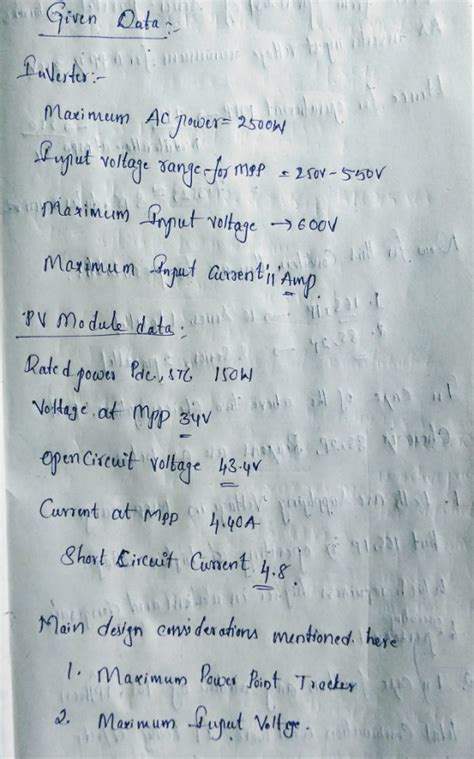 Given Data:-
Inverter:-
Maximum AC power = 2500W
Input voltage range for MPP = 250V - 550V
Maximum Input voltage → 600V
Maximum Input Current '11' Amp.
PV Module data:
Rated power Pdc, STC 150W
Voltage at MPP 34V
open Circuit voltage 43.4V
Current at MPP 4.40A
Short Circuit Current 4.8
Main design considerations mentioned here
1. Maximum Power Point Tracker
2. Maximum Input Voltge.